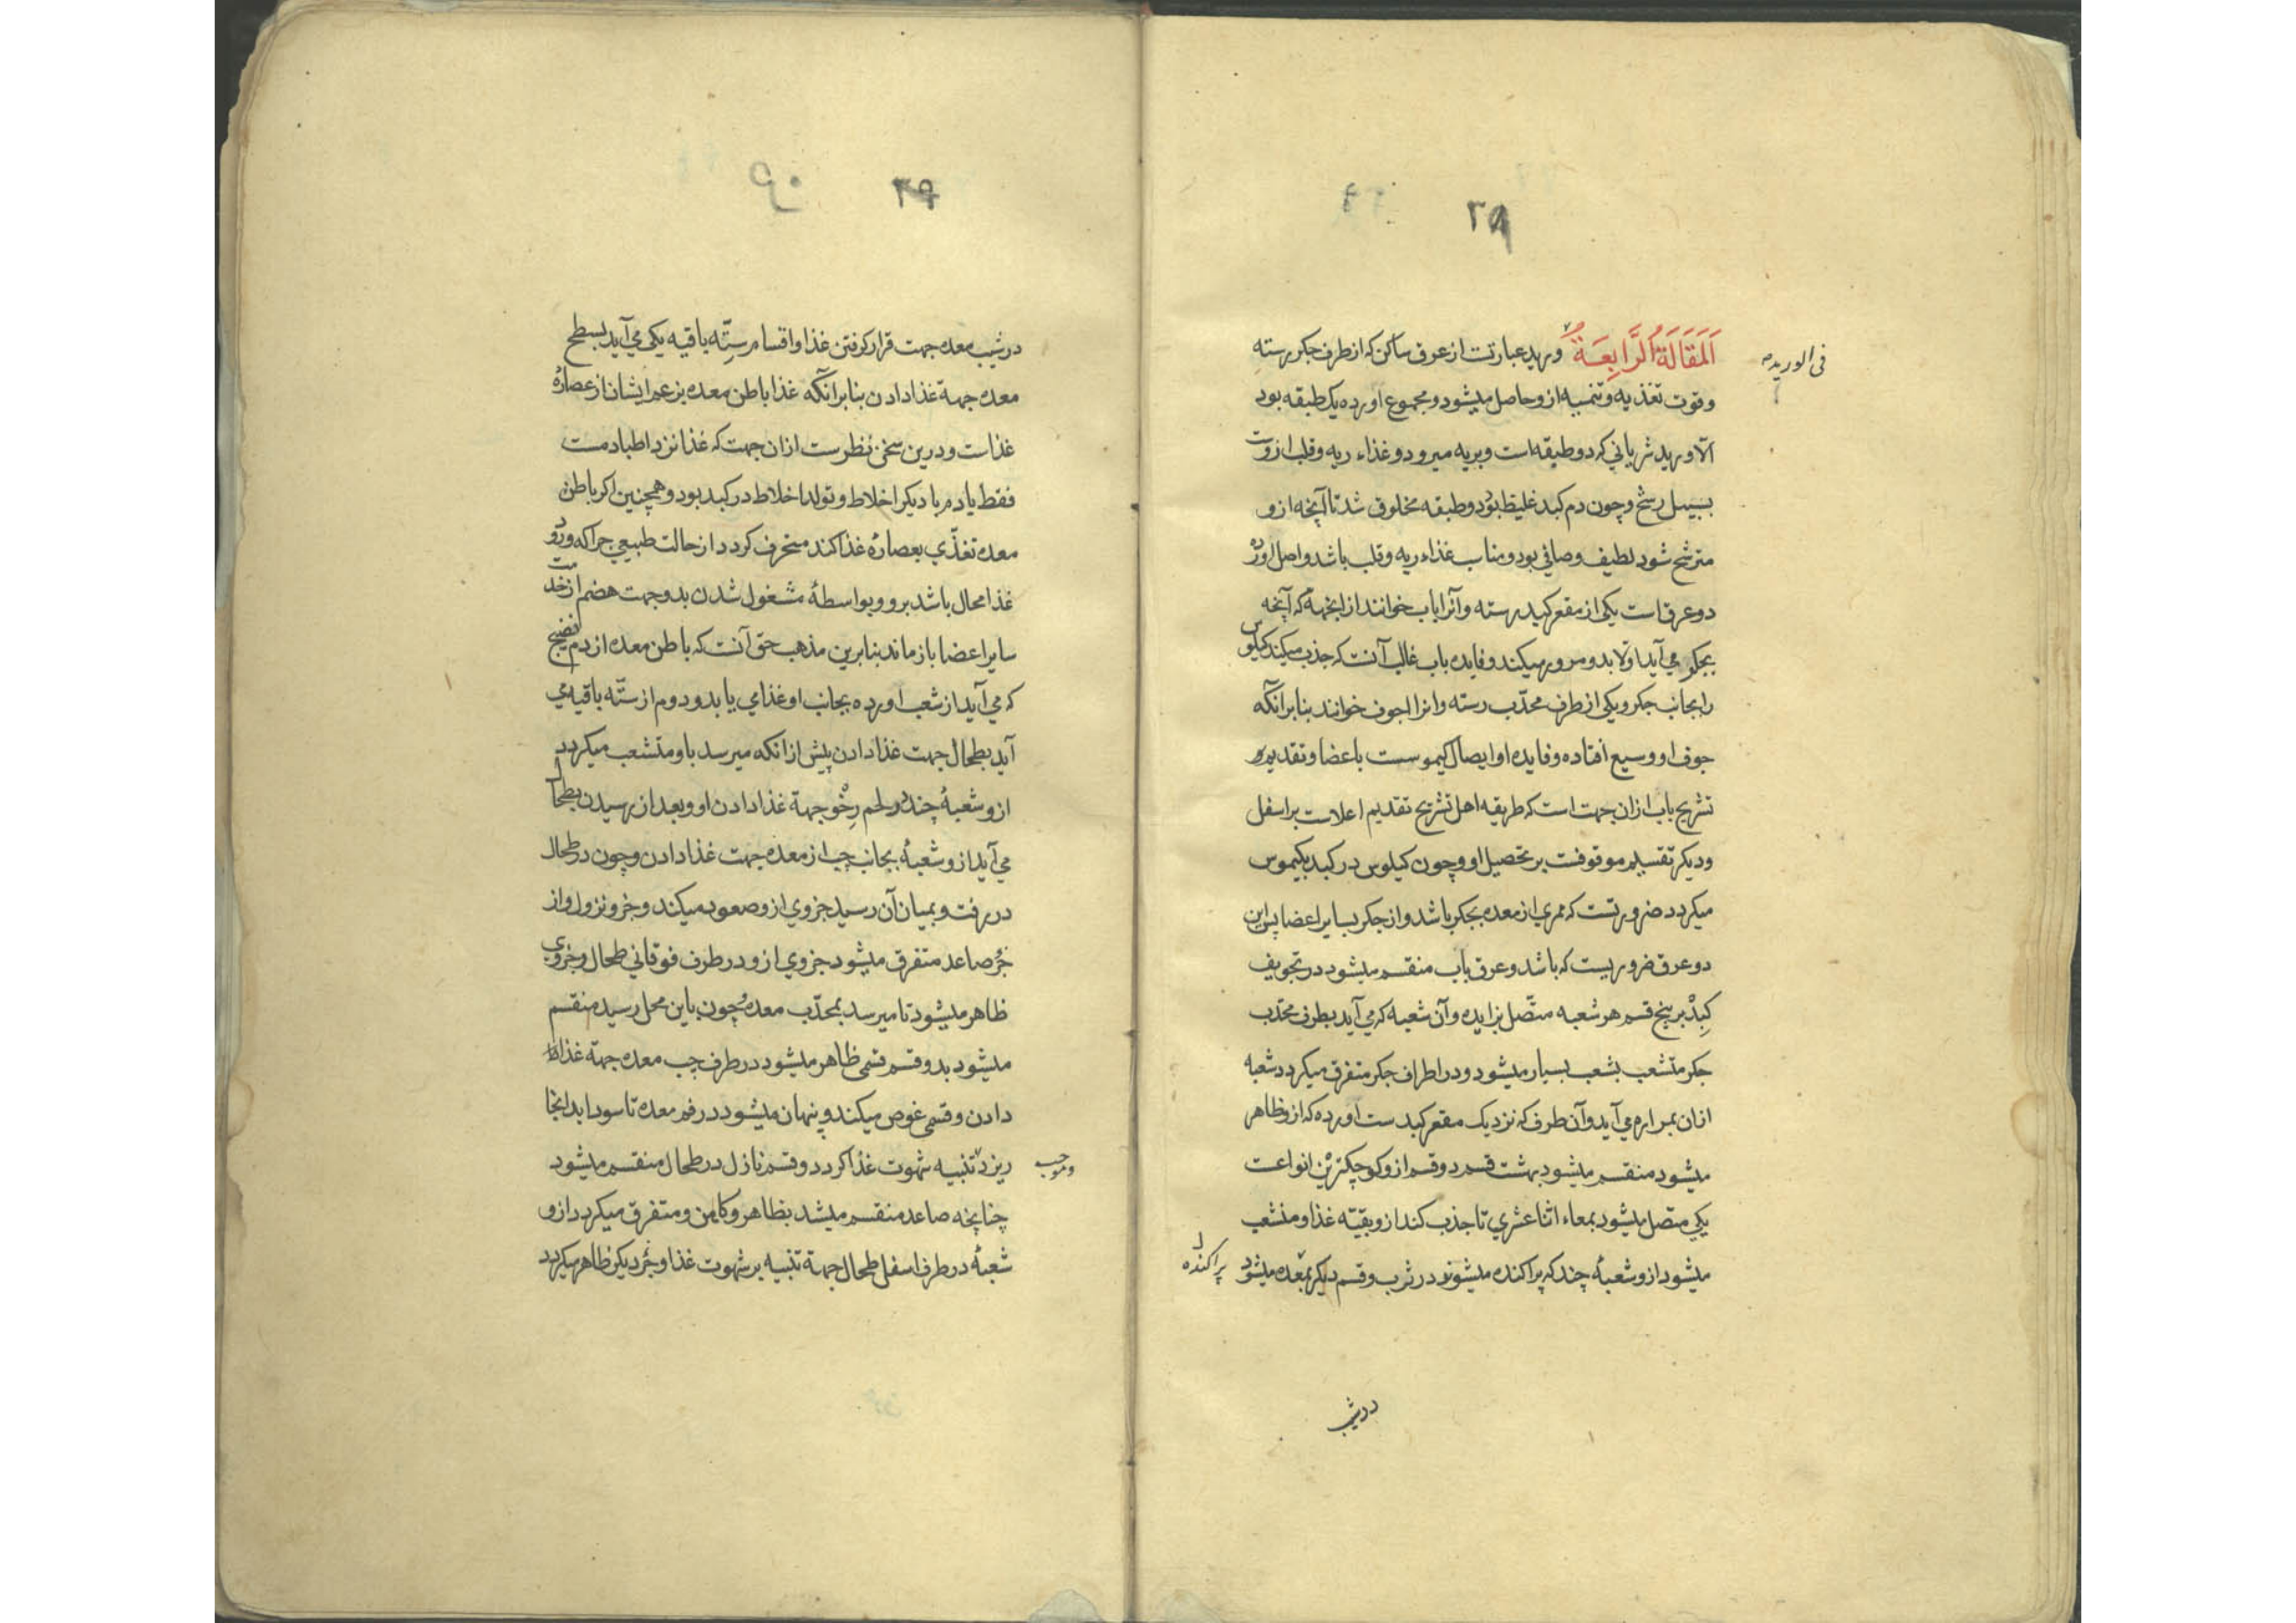 ۳۸
اَلمَقَالَةُ الرَّابِعَةُ وريد عبارتست از عرق ساكن كه از طرف جكر رسته
فى الوريد
وقوت تغذيه وتنميه ازو حاصل ميشود ومجموع اورده يك طبقه بود
الا وريد شرياني كه دو طبقه است وبريه ميرود وغذاء ريه وقلب ازوست
بسبيل رشح وچون دم كبد غليظ بود دو طبقه مخلوق شد تا آنچه ازو
مترشح شود لطيف وصافي بود ومناسب غذاء ريه وقلب باشد واصل اورده
دو عرق است يكى از مقعر كبد رسته وآنرا باب خوانند از انجهة كه آنچه
بجكر مي آيد اولا بدو مرور ميكند وفايده باب غالب آنست كه جذب ميكند كيلوس
را بجانب جكر ويكى از طرف محدّب رسته وانرا اجوف خوانند بنابر آنكه
جوف او وسيع افتاده وفايده او ايصال كيموس ست باعضا وتقديم
تشريح باب ازان جهت است كه طريقه اهل تشريح تقديم اعلاست بر اسفل
وديكر تقسيم موقوفست بر تحصيل او وچون كيلوس در كبد بكيموس
ميكردد ضرورتست كه ممري از معده بجكر باشد واز جكر بساير اعضا پس اين
دو عرق ضروريست كه باشد وعرق باب منقسم ميشود در تجويف
كبد بر پنج قسم هر شعبه متّصل بزايده وآن شعبه كه مي آيد بطرف محدّب
جكر متشعب بشعب بسيار ميشود ودر اطراف جكر متفرق ميكردد شعبه
ازان بمراره مي آيد وآن طرف كه نزديك مقعر كبد ست اورده كه ازو ظاهر
ميشود منقسم ميشود بهشت قسم دو قسم ازو كوچكترين انواعست
يكى متصل ميشود بمعاء اثنا عشري تا جذب كند ازو بقيّه غذا ومنشعب
ميشود ازو شعبۀ چند كه پراكنده ميشوند در ثرب وقسم ديكر بمعده ميشود
پراكنده
در شيب
۳۹
در شيب معده جهت قرار كرفتن غذا واقسام ستّه باقيه يكى مي آيد بسطح
معده جهة غذا دادن بنابر آنكه غذا باطن معده بزعم ايشان از عصارۀ
غذاست ودرين سخن نظرست ازان جهت كه غذا نزد اطبا دمست
فقط يا دم با ديكر اخلاط وتولد اخلاط در كبد بود وهمچنين اكر باطن
معده تغذّي بعصارۀ غذا كند منحرف كردد از حالت طبيعي چرا كه ورود
غذا محال باشد برو وبواسطۀ مشغول شدن بدو جهت هضم از خدمت
ساير اعضا باز ماند بنابرين مذهب حق آنست كه باطن معده از دم نضيج
كه مي آيد از شعب اورده بجانب او غذا مي يابد ودوم از ستّه باقيه مي
آيد بطحال جهت غذا دادن پيش از انكه ميرسد باو متشعب ميكردد
ازو شعبۀ چند ولحم رخو جهة غذا دادن او وبعد از رسيدن بطحال
مي آيد ازو شعبۀ بجانب چپ از معده جهت غذا دادن وچون در طحال
در رفت وبميان آن رسيد جزوي ازو صعود ميكند وجزو نزول واز
جزؤ صاعد متفرق ميشود جزوي ازو در طرف فوقاني طحال وجزوي
ظاهر ميشود تا ميرسد بمحدّب معده وچون باين محل رسيده منقسم
ميشود بدو قسم قسمى ظاهر ميشود در طرف چپ معده جهة غذا
دادن وقسمى غوص ميكند وپنهان ميشود در فم معده تا سودا بدانجا
ريزد تنبيه شهوت غذا كردد وقسم نازل در طحال منقسم ميشود
وموجب
چنانچه صاعد منقسم ميشد بظاهر وكامن ومتفرق ميكردد ازو
شعبۀ در طرف اسفل طحال جهة تنبيه بر شهوت غذا وجزؤ ديكر ظاهر ميكردد